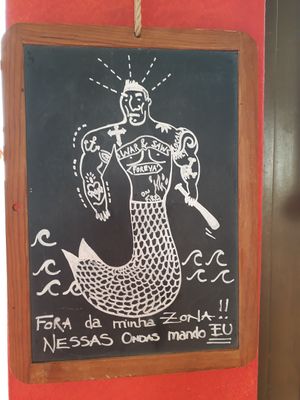 WAR & SAWS
FOREVA'
FORA da minha ZONA!!
NESSAS ONDAS mando EU